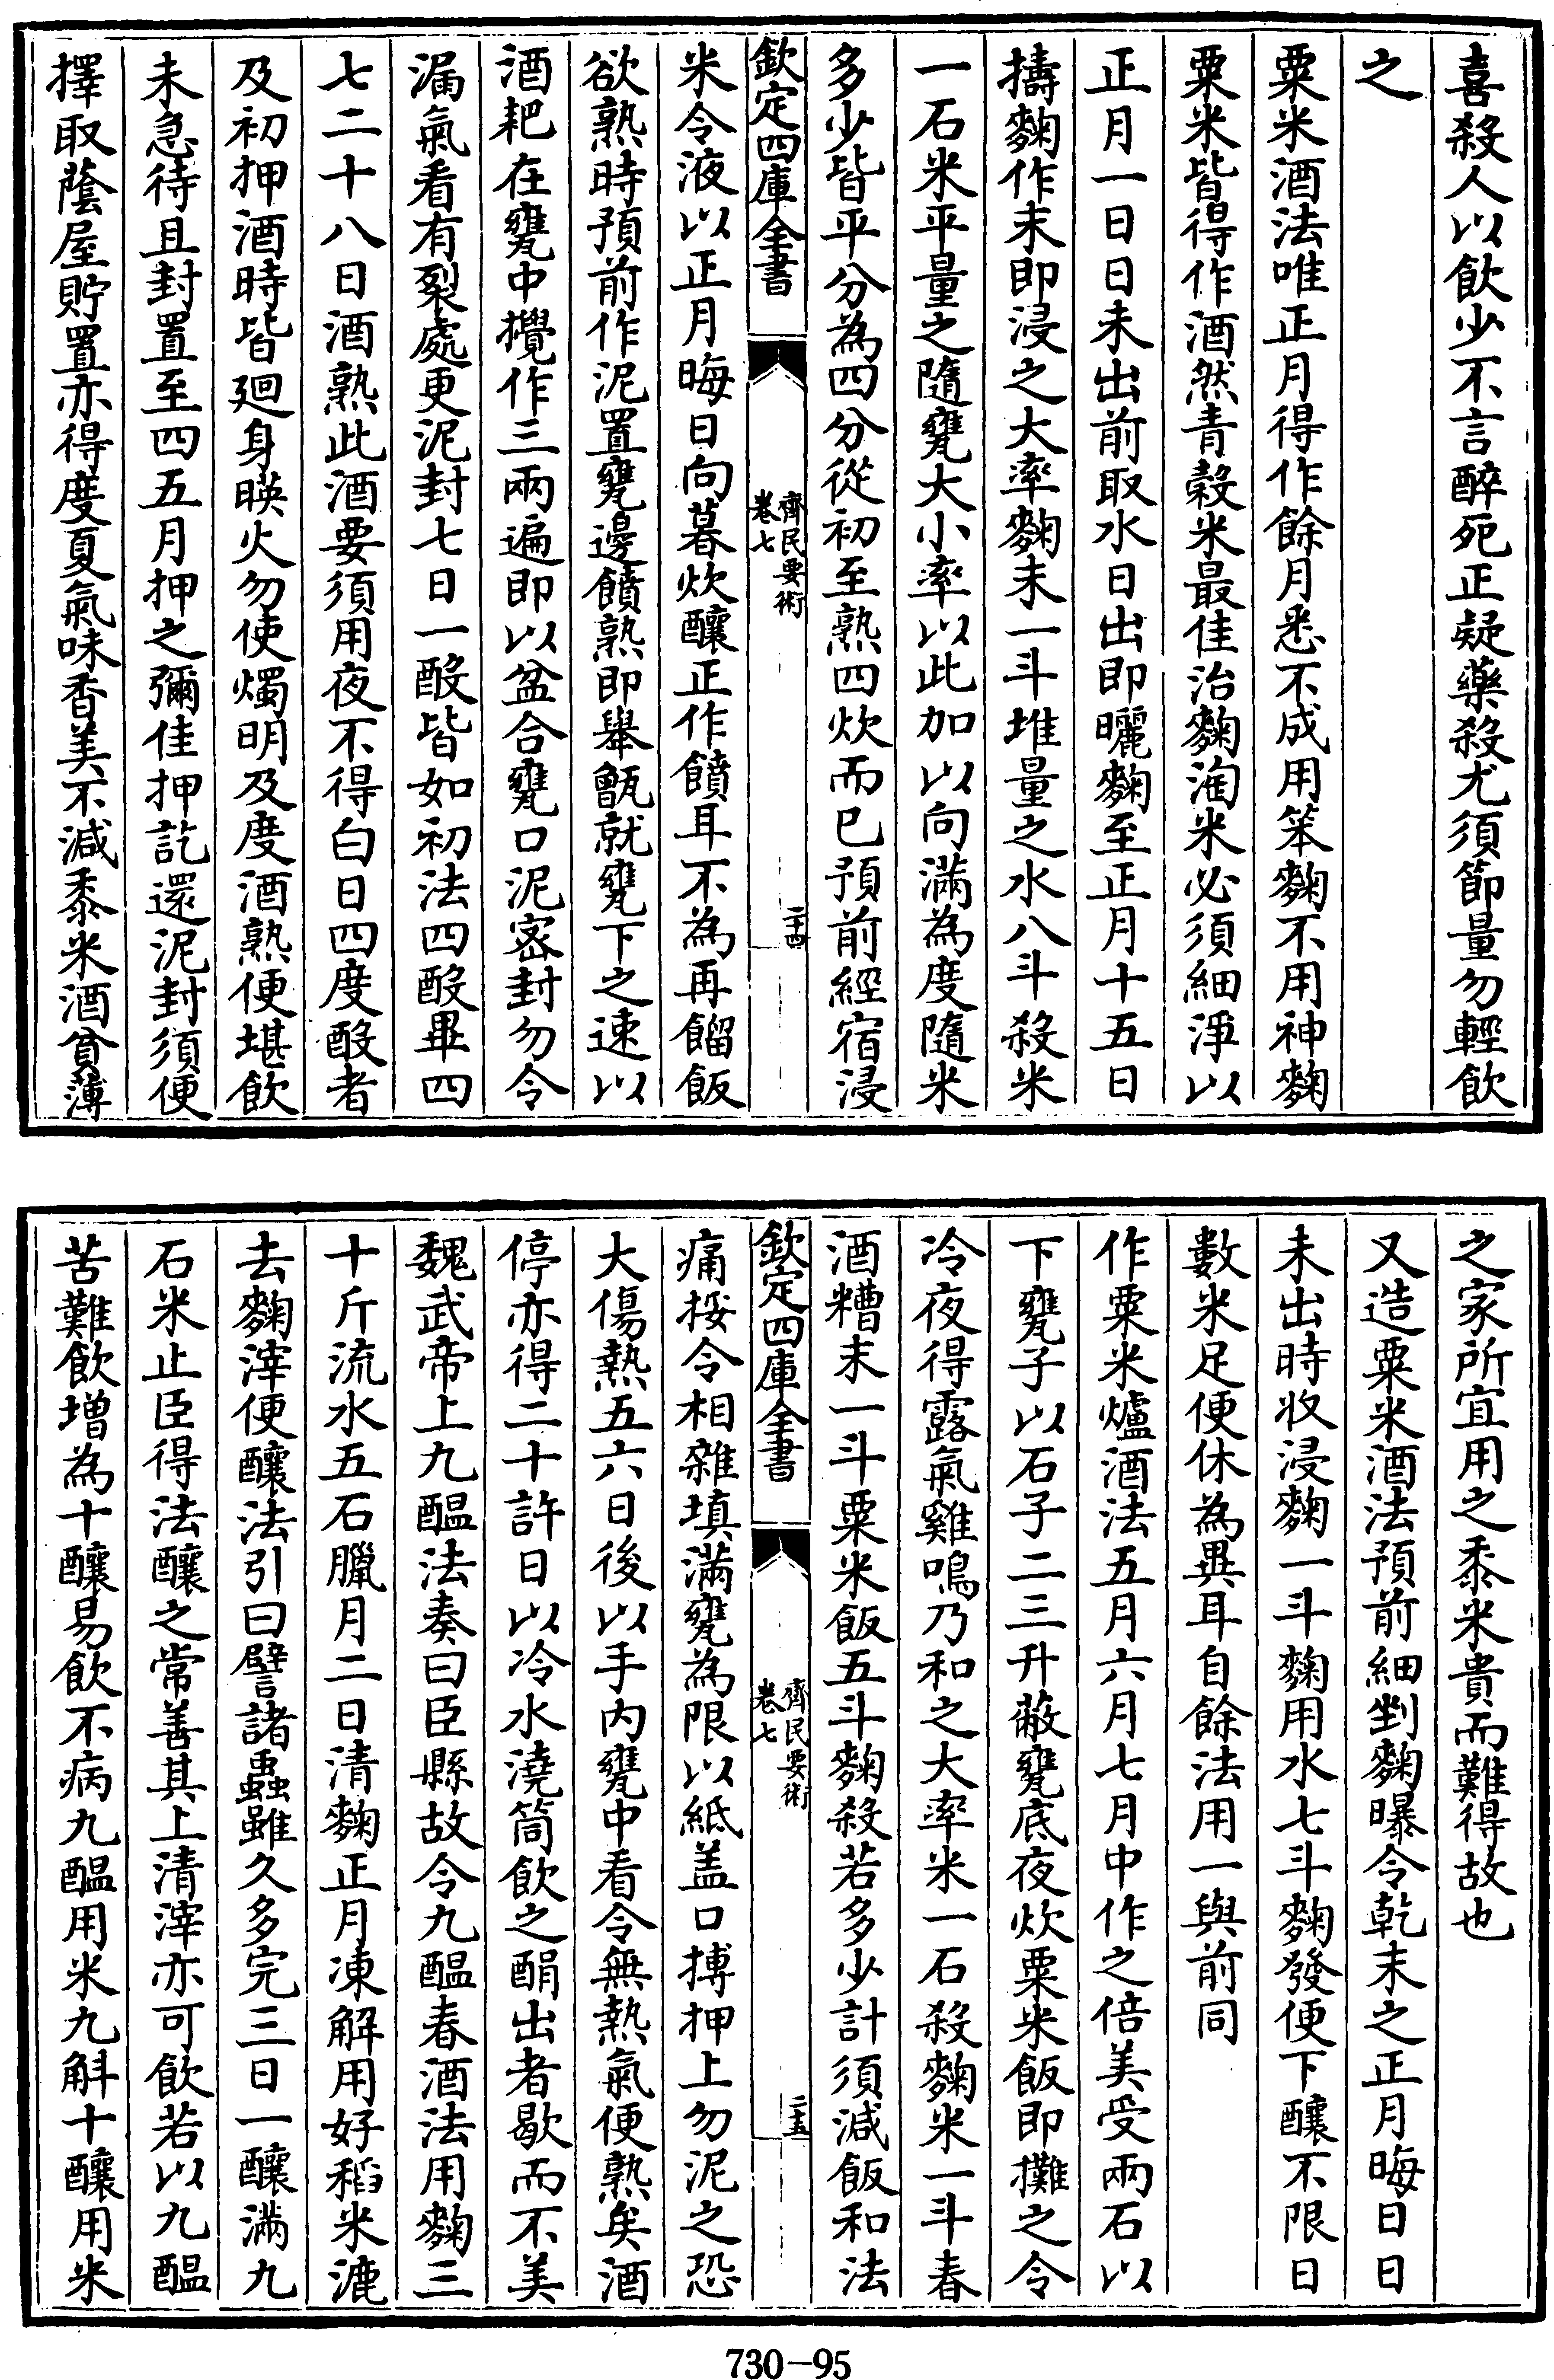 喜殺人以飲少不言醉死正疑藥殺尤須節量勿輕飲
之
粟米酒法唯正月得作餘月悉不成用笨麴不用神麴
粟米皆得作酒然青穀米最佳治麴淘米必須細淨以
正月一日日未出前取水日出即曬麴至正月十五日
擣麴作末即浸之大率麴末一斗堆量之水八斗殺米
一石米平量之隨甕大小率以此加以向滿為度隨米
多少皆平分為四分從初至熟四炊而已預前經宿浸
欽定四庫全書
齊民要術
卷七
二十四
米令液以正月晦日向暮炊釀正作饙耳不為再餾飯
欲熟時預前作泥置甕邊饙熟即舉甑就甕下之速以
酒耙在甕中攪作三兩遍即以盆合甕口泥密封勿令
漏氣看有裂處更泥封七日一酘皆如初法四酘畢四
七二十八日酒熟此酒要須用夜不得白日四度酘者
及初押酒時皆廻身暎火勿使燭明及度酒熟便堪飲
未急待且封置至四五月押之彌佳押訖還泥封須便
擇取蔭屋貯置亦得度夏氣味香美不減黍米酒貧薄
之家所宜用之黍米貴而難得故也
又造粟米酒法預前細剉麴曝令乾末之正月晦日日
未出時收浸麴一斗麴用水七斗麴發便下釀不限日
數米足便休為異耳自餘法用一與前同
作粟米爐酒法五月六月七月中作之倍美受兩石以
下甕子以石子二三升蔽甕底夜炊粟米飯即攤之令
冷夜得露氣雞鳴乃和之大率米一石殺麴米一斗春
酒糟末一斗粟米飯五斗麴殺若多少計須減飯和法
欽定四庫全書
齊民要術
卷七
二十五
痛挼令相雜填滿甕為限以紙盖口搏押上勿泥之恐
大傷熱五六日後以手内甕中看令無熱氣便熟矣酒
停亦得二十許日以冷水澆筒飲之酳出者歇而不美
魏武帝上九醞法奏曰臣縣故令九醞春酒法用麴三
十斤流水五石臘月二日清麴正月凍解用好稻米漉
去麴滓便釀法引曰譬諸蟲雖久多完三日一釀滿九
石米止臣得法釀之常善其上清滓亦可飲若以九醞
苦難飲增為十釀易飲不病九醞用米九斛十釀用米
730-95